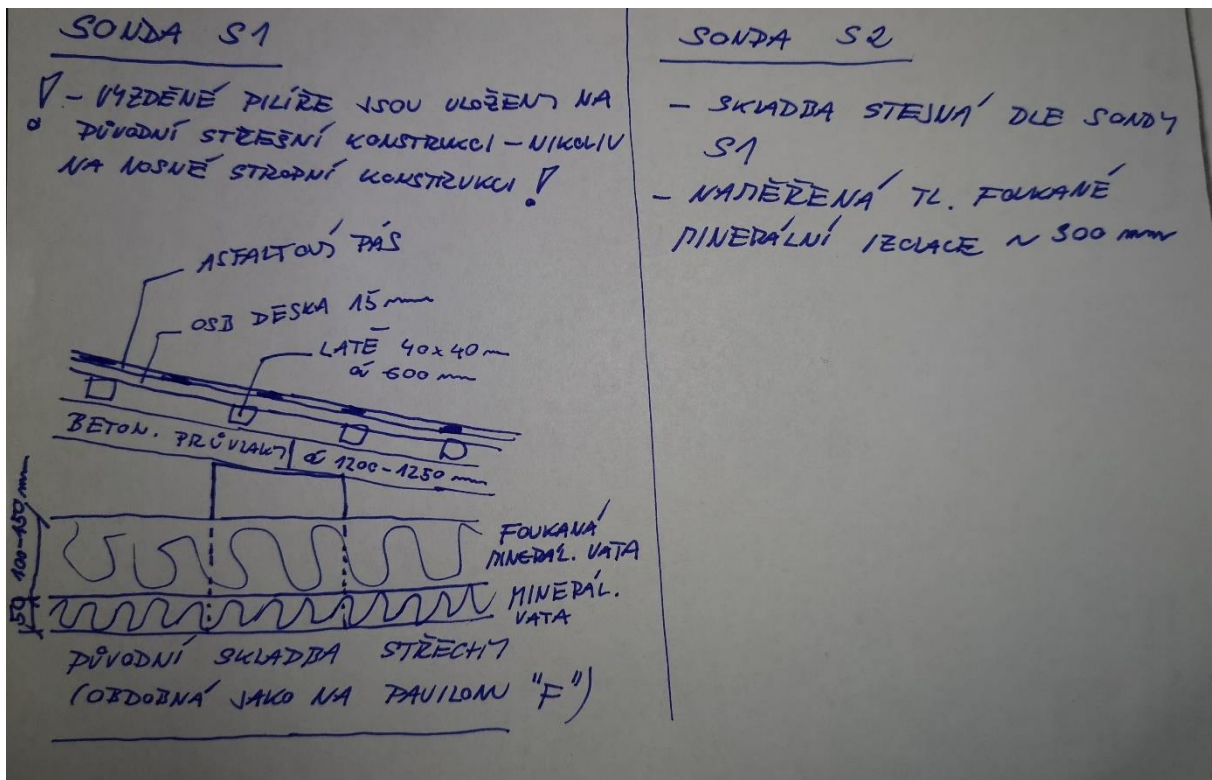 SONDA S1
! - VYZDĚNÉ PILÍŘE JSOU ULOŽENY NA
PŮVODNÍ STŘEŠNÍ KONSTRUKCI - NIKOLIV
NA NOSNÉ STROPNÍ KONSTRUKCI !
ASFALTOVÝ PÁS
OSB DESKA 15 mm
LATĚ 40x40 m
á 600 mm
BETON. PRŮVLAKY á 1200-1250 mm
FOUKANÁ
MINERÁL. VATA
MINERÁL.
VATA
100-150 mm
50
PŮVODNÍ SKLADBA STŘECHY
(OBDOBNÁ JAKO NA PAVILONU "F")
SONDA S2
- SKLADBA STEJNÁ DLE SONDY
S1
- NAMĚŘENÁ TL. FOUKANÉ
MINERÁLNÍ IZOLACE ~ 300 mm